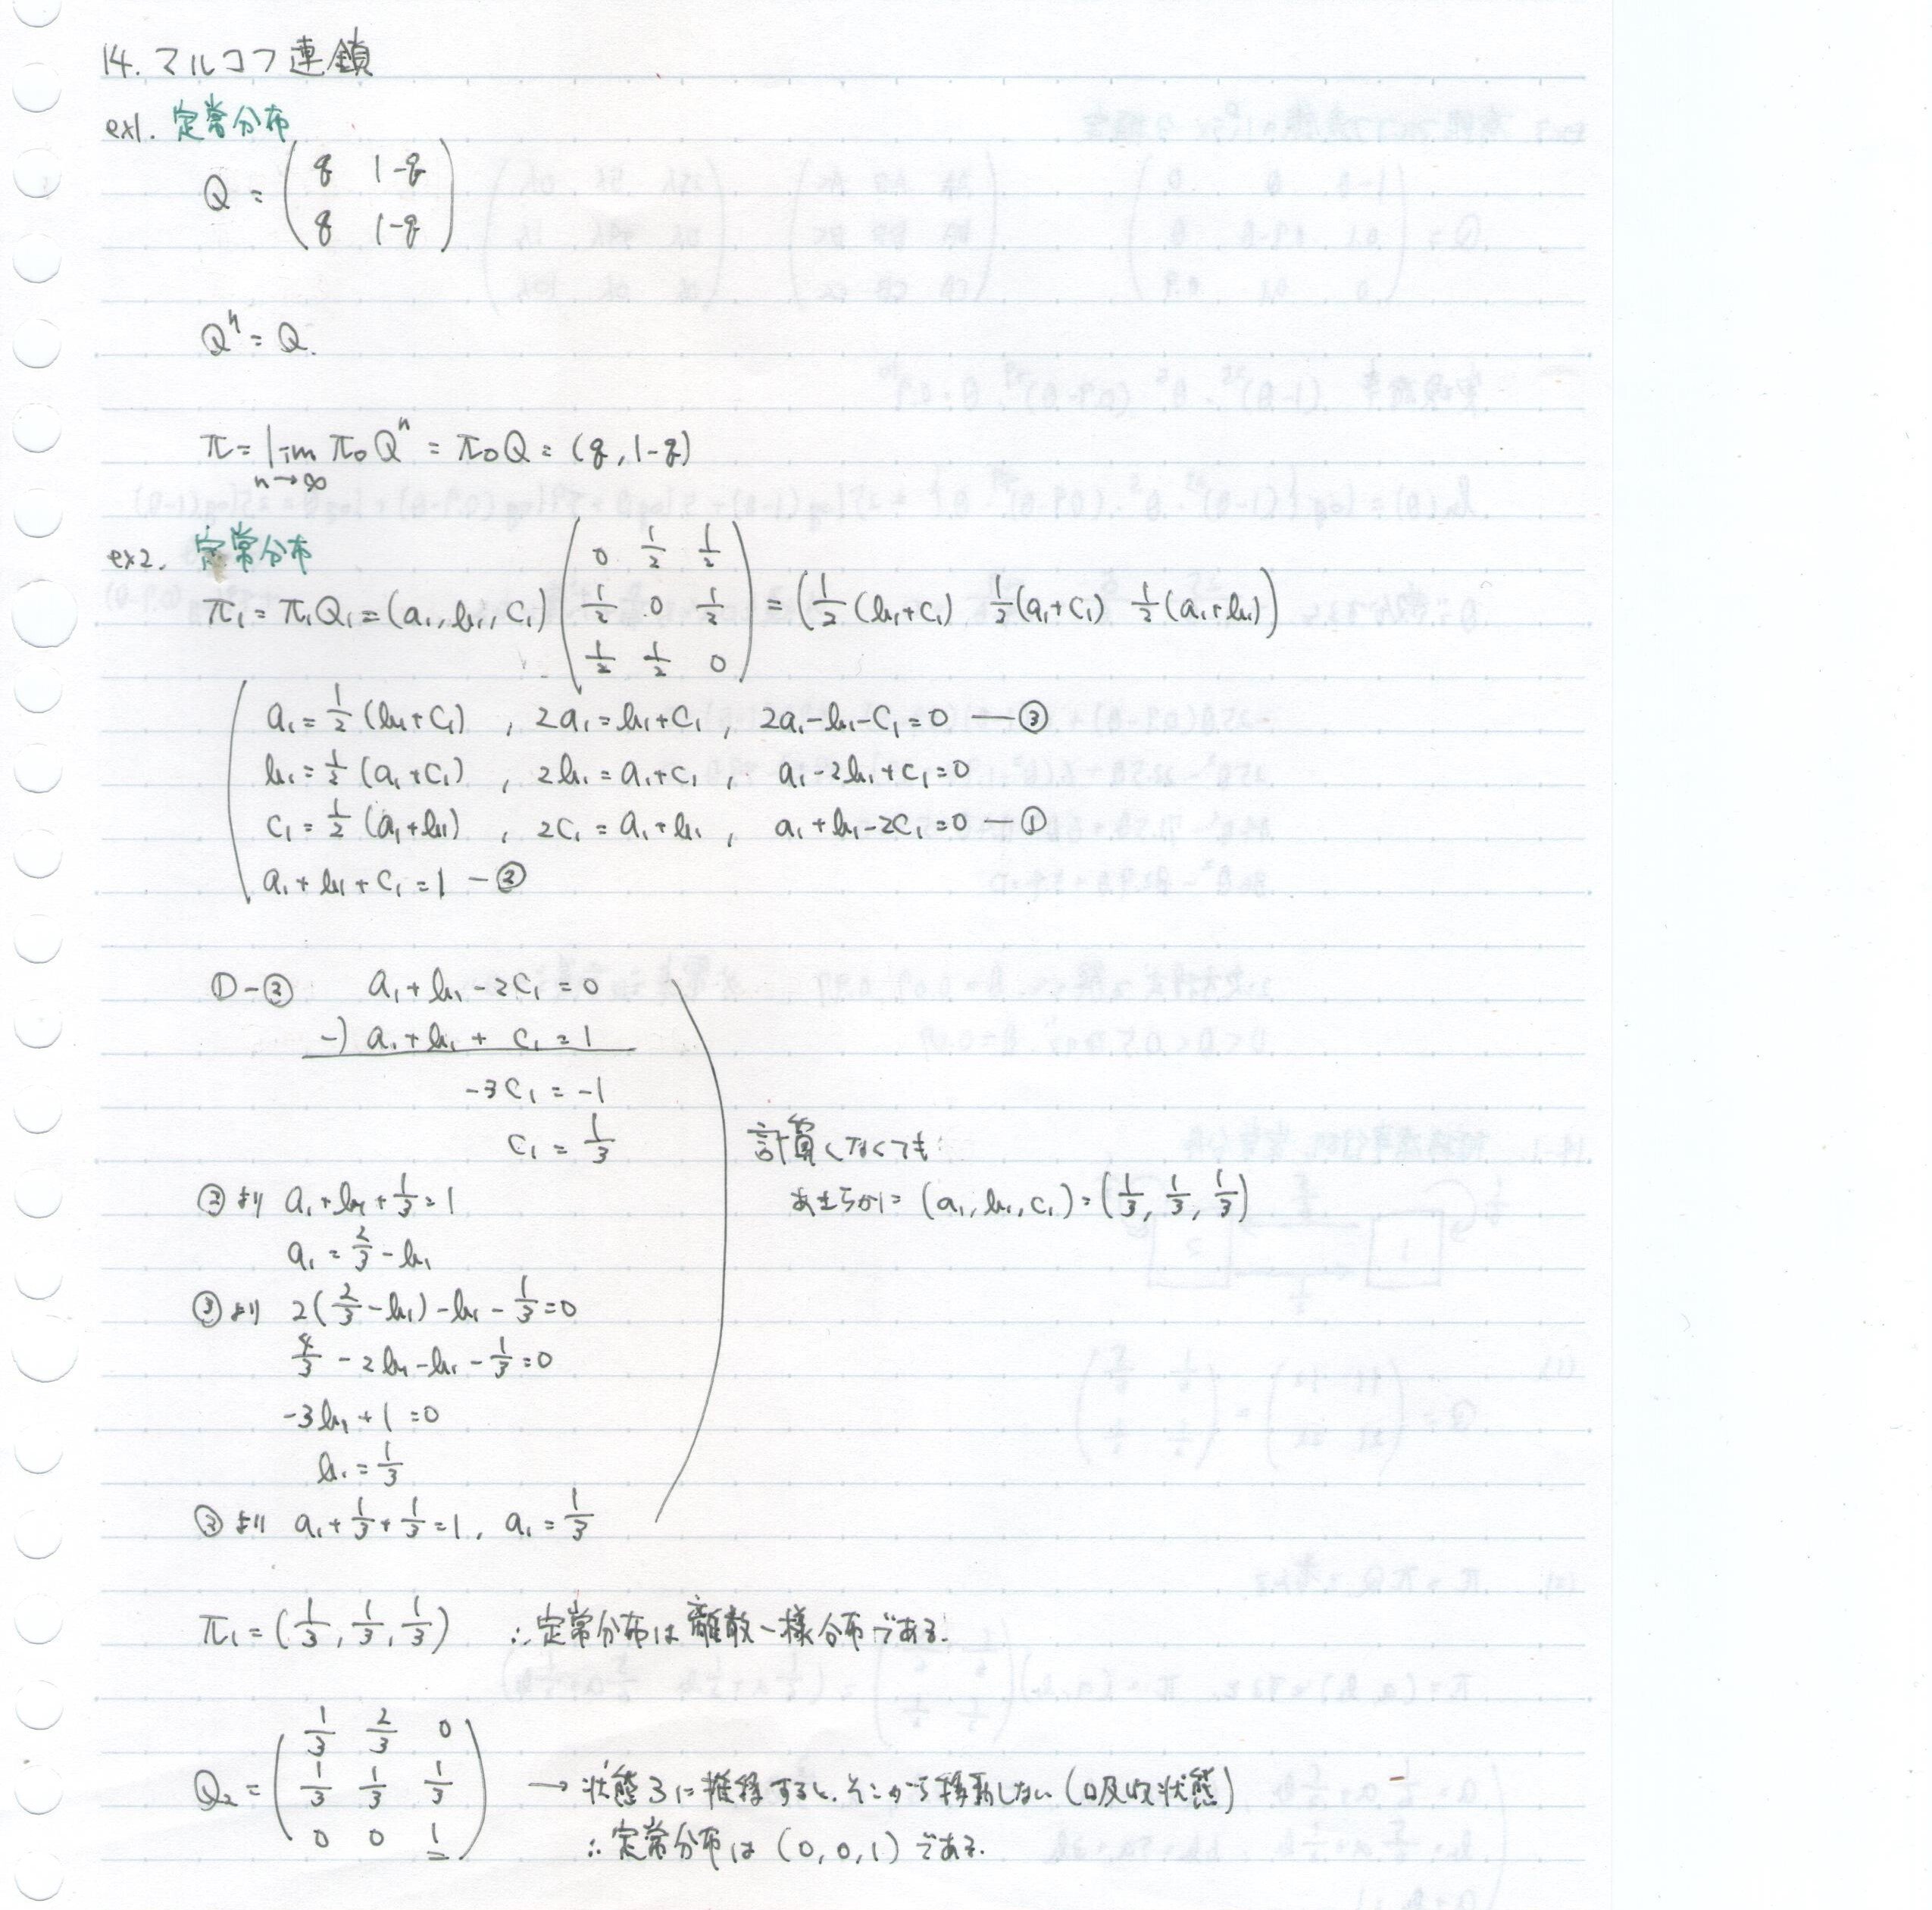 14. マルコフ連鎖
ex1. 定常分布
Q = ( q 1-q
q 1-q )
Q^n = Q.
π = lim_{n→∞} π₀Q^n = π₀Q = (q, 1-q)
ex2. 定常分布
π₁ = π₁Q₁ = (a₁, b₁, c₁) ( 0 1/2 1/2
1/2 0 1/2
1/2 1/2 0 ) = ( 1/2(b₁+c₁) 1/2(a₁+c₁) 1/2(a₁+b₁) )
a₁ = 1/2 (b₁+c₁) , 2a₁ = b₁+c₁ , 2a₁-b₁-c₁ = 0 — ③
b₁ = 1/2 (a₁+c₁) , 2b₁ = a₁+c₁ , a₁-2b₁+c₁ = 0
c₁ = 1/2 (a₁+b₁) , 2c₁ = a₁+b₁ , a₁+b₁-2c₁ = 0 — ①
a₁+b₁+c₁ = 1 — ②
①-② a₁+b₁-2c₁ = 0
-) a₁+b₁+c₁ = 1
-3c₁ = -1
c₁ = 1/3
②より a₁+b₁+1/3 = 1
a₁ = 2/3 - b₁
③より 2(2/3-b₁)-b₁-1/3 = 0
4/3-2b₁-b₁-1/3 = 0
-3b₁+1 = 0
b₁ = 1/3
②より a₁+1/3+1/3 = 1, a₁ = 1/3
計算しなくても
あきらかに (a₁, b₁, c₁) = (1/3, 1/3, 1/3)
π₁ = (1/3, 1/3, 1/3) ∴定常分布は離散一様分布である.
Q₂ = ( 1/3 2/3 0
1/3 1/3 1/3
0 0 1 )
→ 状態3に推移すると、そこから移動しない (吸収状態)
∴定常分布は (0, 0, 1) である.